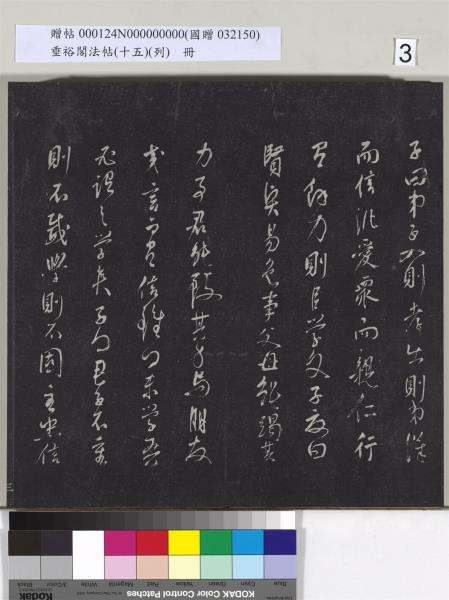 贈帖 000124N000000000(國贈 032150)
垂裕閣法帖(十五)(列) 冊
3
子曰弟子入則孝出則弟謹
而信汎愛眾而親仁行
有餘力則以學文子夏曰
賢賢易色事父母能竭其
力事君能致其身與朋友
交言而有信雖曰未學吾
必謂之學矣子曰君子不重
則不威學則不固主忠信
三
KODAK Color Control Patches
Blue Cyan Green Yellow Red Magenta White 3/Color Black